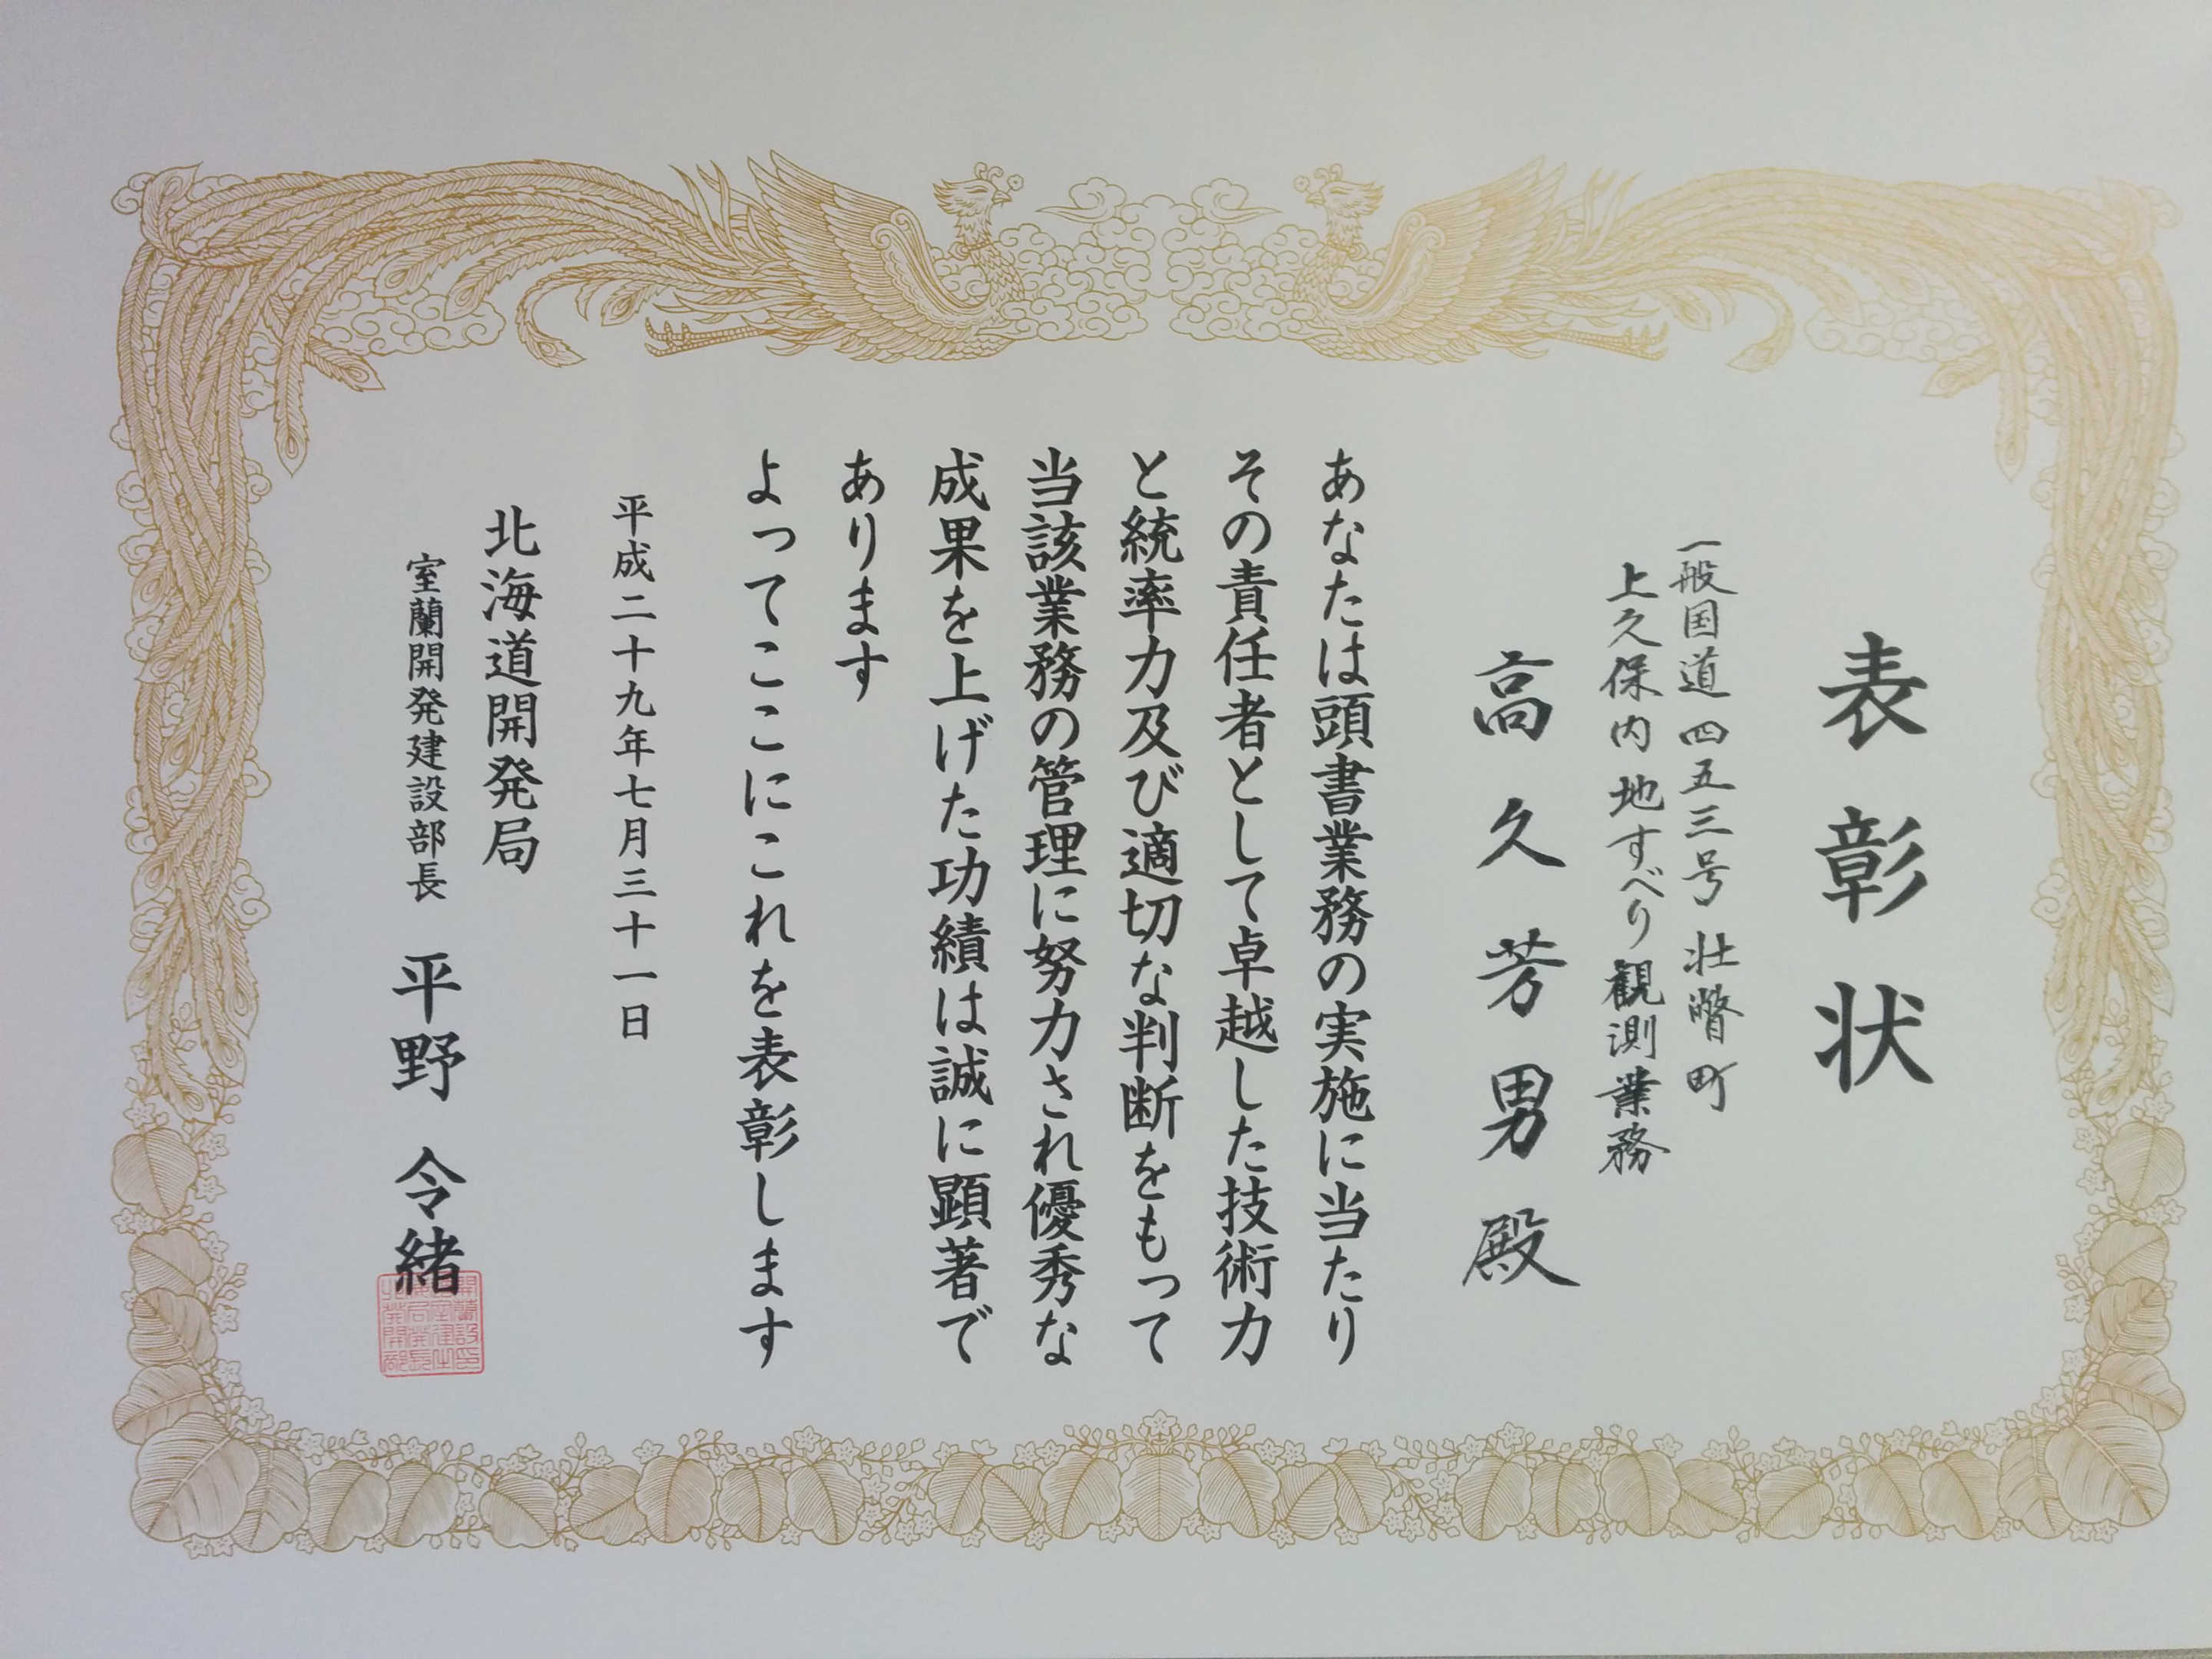 表彰状
一般国道四五三号 壮瞥町
上久保内地すべり観測業務
高久芳男殿
あなたは頭書業務の実施に当たり
その責任者として卓越した技術力
と統率力及び適切な判断をもって
当該業務の管理に努力され優秀な
成果を上げた功績は誠に顕著で
あります
よってここにこれを表彰します
平成二十九年七月三十一日
北海道開発局
室蘭開発建設部長 平野 令緒